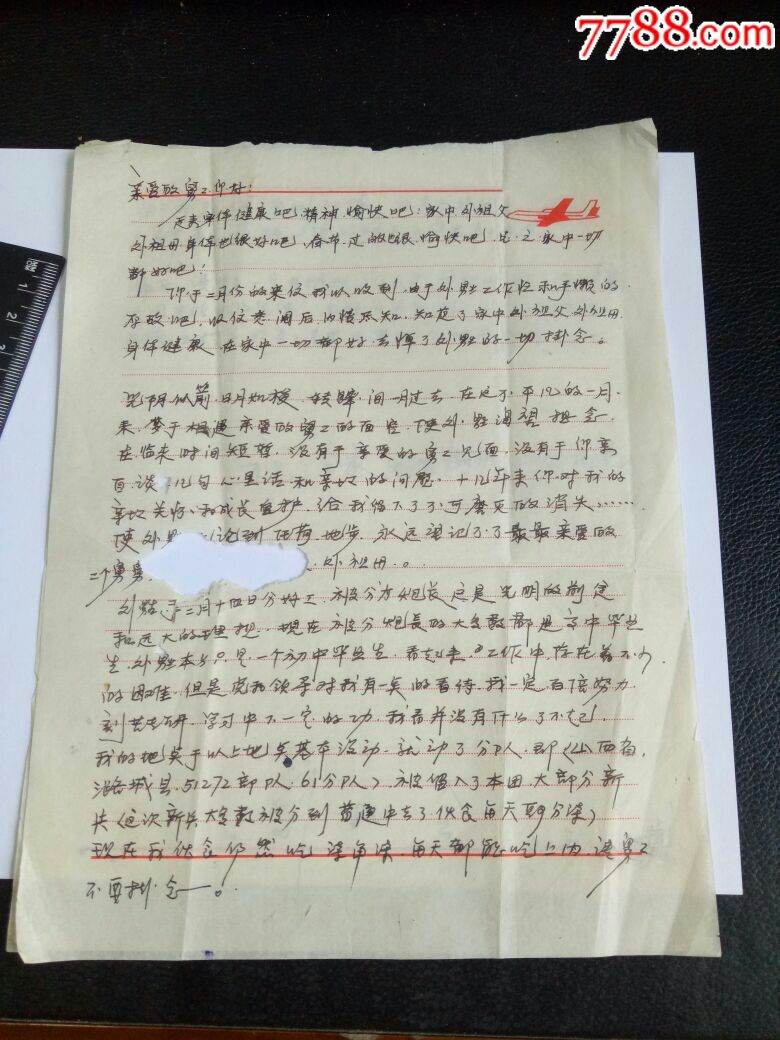 7788.com
亲爱的舅父你好:
近来身体健康吧,精神愉快吧:家中外祖父
外祖母身体也很好吧,春节过的也很愉快吧,总之家中一切
都好吧!
你于二月份的来信我以收到,由于外甥工作忙和手懒的
存故吧,收信悉阅后内情尽知,知道了家中外祖父外祖母
身体健康,在家中一切都好,去掉了外甥的一切掛念。
光阴似箭,日月如梭,转眼间一月过去,在这不平凡的一月
来,梦于相遇亲爱的舅父的面容,使外甥渴望想念
在临来时间短暂,没有于亲爱的舅父见面,没有于你亲
自谈几句心里话和亲切的问题,十几年来你对我的
亲切关怀和成长,给我留下了不可磨灭的消失……
使外甥 论到任何地步,永远望记不了最最亲爱的
二个舅舅 外祖母。
外甥于二月十四日分好工,被分为炮長,这是光明的前途
和远大的理想,现在被分炮長的大多数都是高中毕业
生,外甥本身只是一个初中毕业生,看起来工作中存在着不少
的困难,但是党和领导对我有一定的看待,我一定百倍努力
刻苦专研,学习中下一定的功,我看并没有什么了不起,
我的地点于以上地点基本没动,就动了分队,即(山西省,
潞城县,51272部队,61分队)被偏入了本团,大部分新
兵(这次新兵大多数被分到普通中去了伙食每天 分柒)
现在我伙食仍然吃 ,每天都能吃上肉,请舅父
不要掛念。